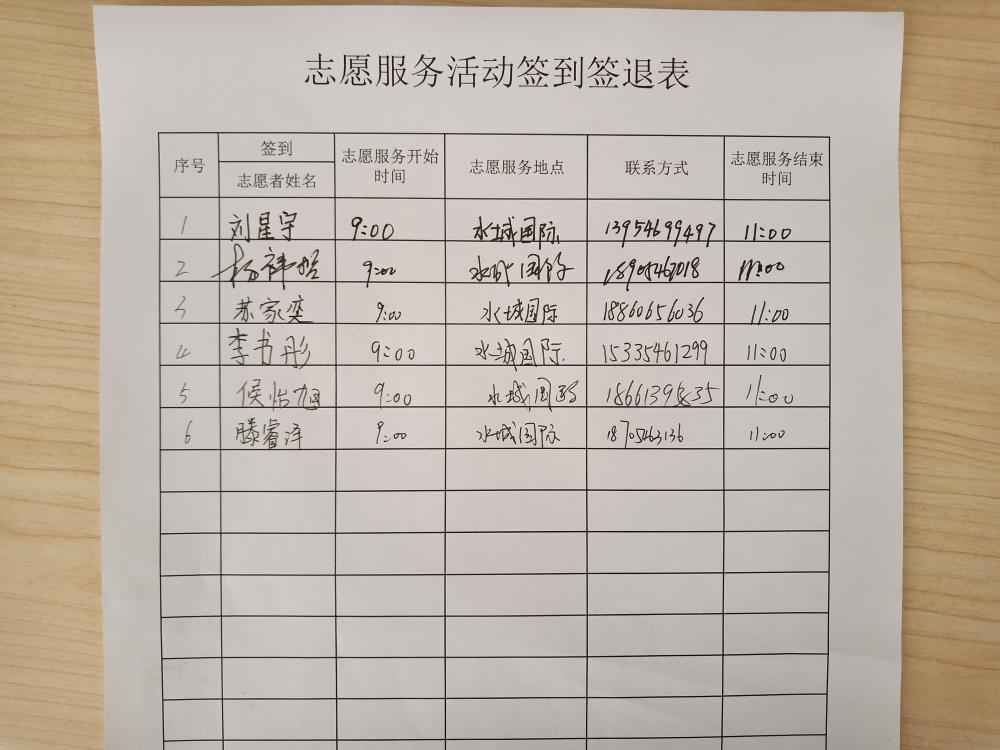 志愿服务活动签到签退表
序号 签到 志愿者姓名 志愿服务开始时间 志愿服务地点 联系方式 志愿服务结束时间
1 刘星宇 9:00 水城国际 13954699497 11:00
2 9:00 水城国际 11:00
3 苏家奕 9:00 水城国际 18860656036 11:00
4 李书彤 9:00 水城国际 15335461299 11:00
5 侯怡旭 9:00 水城国际 11:00
6 滕睿泽 9:00 水城国际 11:00